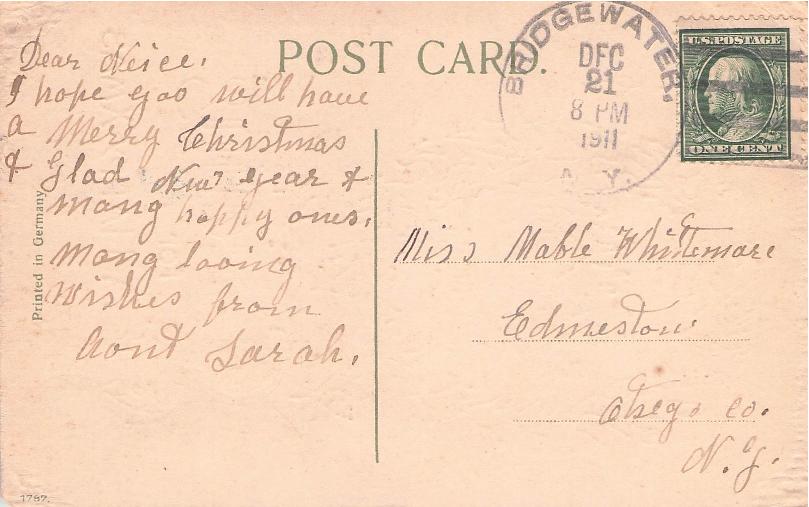 POST CARD.
Dear Neice.
I hope you will have
a Merry Christmas
& Glad New year &
many happy ones,
Many loving
Wishes from
Aunt Sarah.
Printed in Germany
1787.
BRIDGEWATER,
DEC
21
8 PM
1911
N. Y.
U.S. POSTAGE
ONE CENT
Miss Mable Whitemore
Edmeston
Otsego Co.
N.Y.